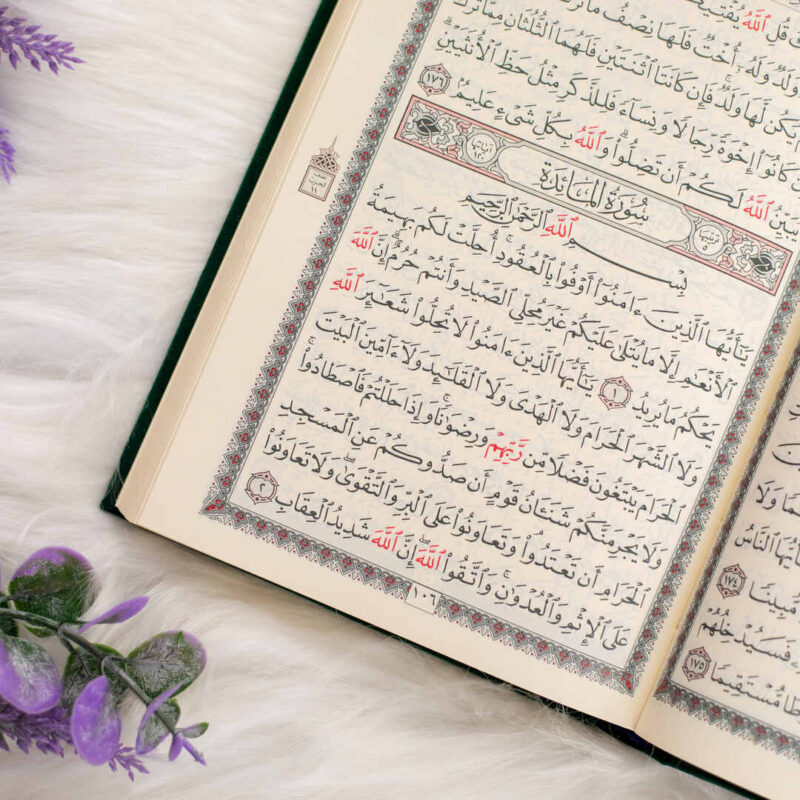 قُلِ ٱللَّهُ يُفْتِيكُ
وَلَدٌ وَلَهُۥٓ أُخْتٌ فَلَهَا نِصْفُ مَا تَرَكَ
يَكُن لَّهَا وَلَدٌ فَإِن كَانَتَا ٱثْنَتَيْنِ فَلَهُمَا ٱلثُّلُثَانِ مِمَّا تَرَكَ
كَانُوٓا۟ إِخْوَةً رِّجَالًا وَنِسَآءً فَلِلذَّكَرِ مِثْلُ حَظِّ ٱلْأُنثَيَيْنِ
يِّنُ ٱللَّهُ لَكُمْ أَن تَضِلُّوا۟ وَٱللَّهُ بِكُلِّ شَىْءٍ عَلِيمٌ ١٧٦
سُورَةُ المَائِدَةِ
بِسْمِ ٱللَّهِ ٱلرَّحْمَٰنِ ٱلرَّحِيمِ
يَٰٓأَيُّهَا ٱلَّذِينَ ءَامَنُوٓا۟ أَوْفُوا۟ بِٱلْعُقُودِ أُحِلَّتْ لَكُم بَهِيمَةُ
ٱلْأَنْعَٰمِ إِلَّا مَا يُتْلَىٰ عَلَيْكُمْ غَيْرَ مُحِلِّى ٱلصَّيْدِ وَأَنتُمْ حُرُمٌ إِنَّ ٱللَّهَ
يَحْكُمُ مَا يُرِيدُ ١ يَٰٓأَيُّهَا ٱلَّذِينَ ءَامَنُوا۟ لَا تُحِلُّوا۟ شَعَٰٓئِرَ ٱللَّهِ
وَلَا ٱلشَّهْرَ ٱلْحَرَامَ وَلَا ٱلْهَدْىَ وَلَا ٱلْقَلَٰٓئِدَ وَلَآ ءَآمِّينَ ٱلْبَيْتَ
ٱلْحَرَامَ يَبْتَغُونَ فَضْلًا مِّن رَّبِّهِمْ وَرِضْوَٰنًا وَإِذَا حَلَلْتُمْ فَٱصْطَادُوا۟
وَلَا يَجْرِمَنَّكُمْ شَنَـَٔانُ قَوْمٍ أَن صَدُّوكُمْ عَنِ ٱلْمَسْجِدِ
ٱلْحَرَامِ أَن تَعْتَدُوا۟ وَتَعَاوَنُوا۟ عَلَى ٱلْبِرِّ وَٱلتَّقْوَىٰ وَلَا تَعَاوَنُوا۟
عَلَى ٱلْإِثْمِ وَٱلْعُدْوَٰنِ وَٱتَّقُوا۟ ٱللَّهَ إِنَّ ٱللَّهَ شَدِيدُ ٱلْعِقَابِ ٢
١٠٦
وَلَا
ٱلنَّاسُ
مُّبِينًا ١٧٤
فَسَيُدْخِلُهُمْ
مُّسْتَقِيمًا ١٧٥